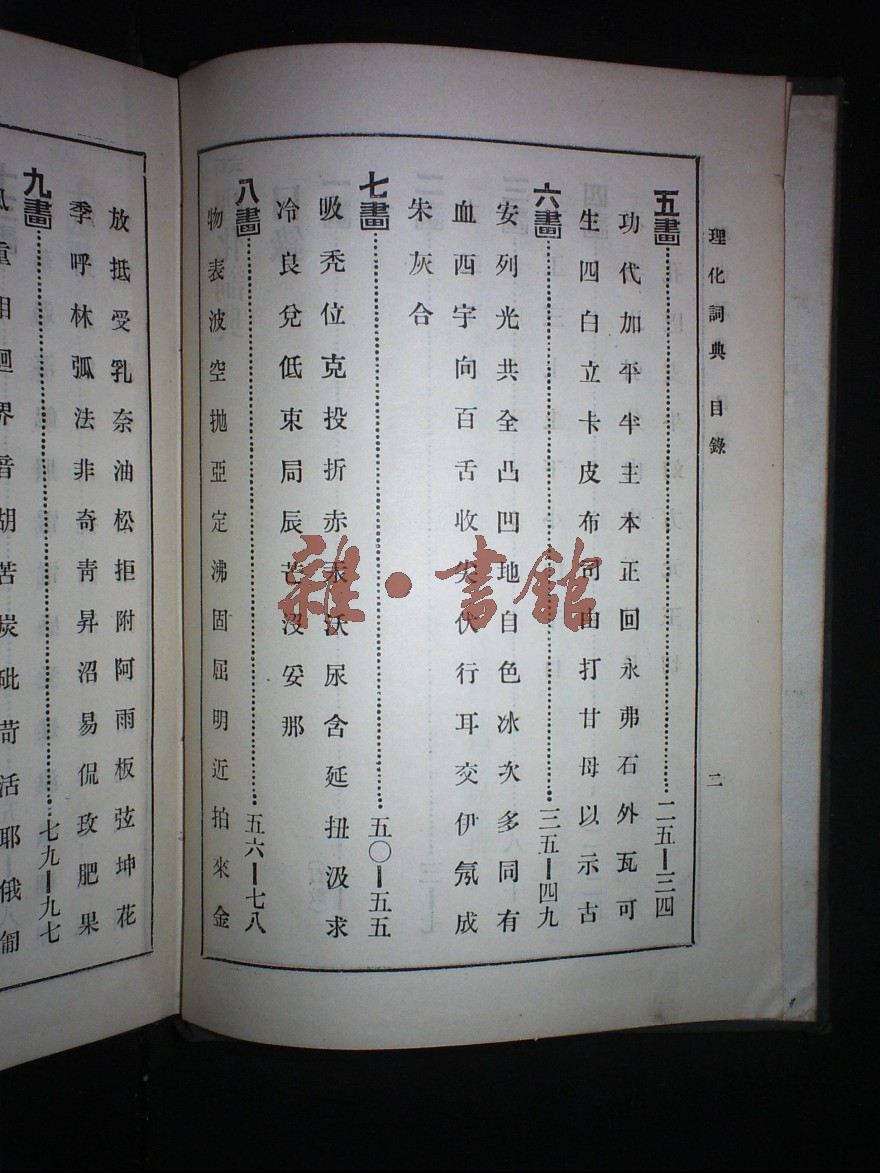 理化詞典 目錄 二
五畫……二五—三四
功代加平半主本正回永弗石外瓦可
生四白立卡皮布司由打甘母以示古
六畫……三五—四九
安列光共全凸凹地自色冰次多同有
血西宇向百舌收尖伏行耳交伊氖成
朱灰合
七畫……五〇—五五
吸禿位克投折赤汞沃尿含延扭汲求
冷良兌低束局辰芒沒妥那
八畫……五六—七八
物表波空拋亞定沸固屈明近拍來金
放抵受乳奈油松拒附阿雨板弦坤花
季呼林弧法非奇靑昇沼易侃玫肥果
九畫……七九—九七
重相迴界音胡苦炭砒苛活耶俄匍
雜·書館